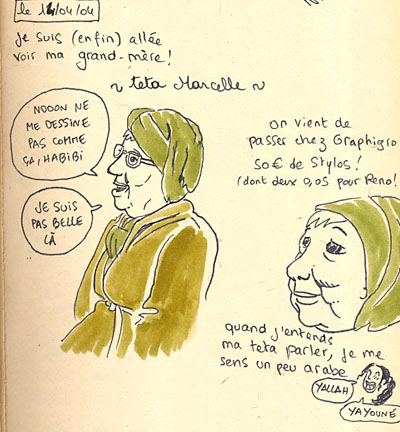 le 14/04/04
Je suis (enfin) allée
voir ma grand-mère!
~ teta Marcelle ~
NOOON NE
ME DESSINE
PAS COMME
ÇA, HABIBI
JE SUIS
PAS BELLE
LÀ
on vient de
passer chez Graphigro
50€ de Stylos!
(dont deux 0,05 pour Reno!)
quand j'entends
ma teta parler, je me
sens un peu arabe
YALLAH
YAYOUNÉ